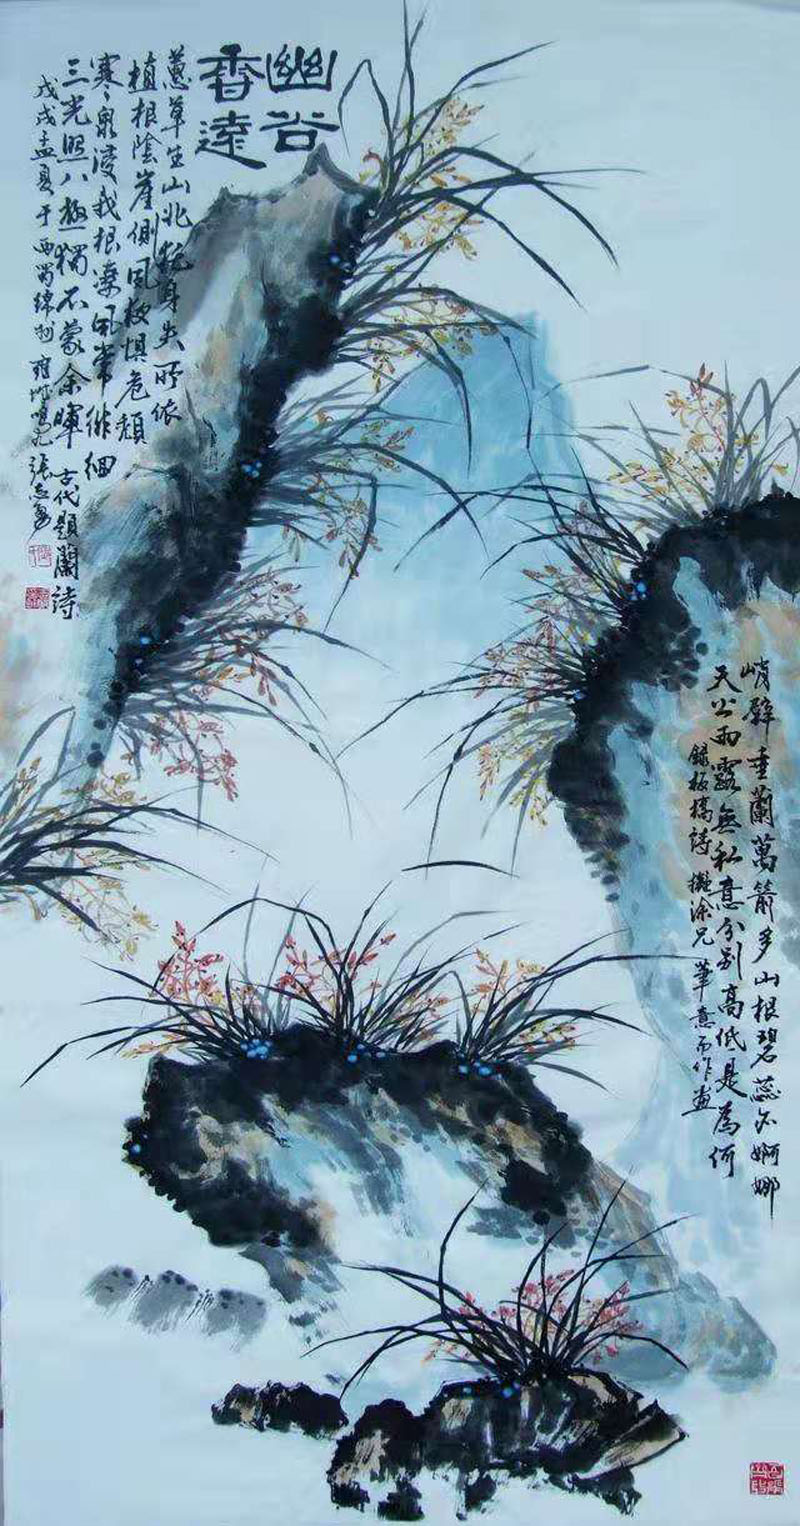 幽谷
香遠
蕙草生山北託身失所依
植根陰崖側夙夜懼危頹
寒泉浸我根淒風常徘徊
三光照八極獨不蒙余暉 古代題蘭詩
戊戌孟夏于西蜀綿州 張志勇
峭壁垂蘭萬箭多山根碧蕊亦婀娜
天公雨露無私意分別高低是為何
錄板橋詩擬涂兄筆意而作畫